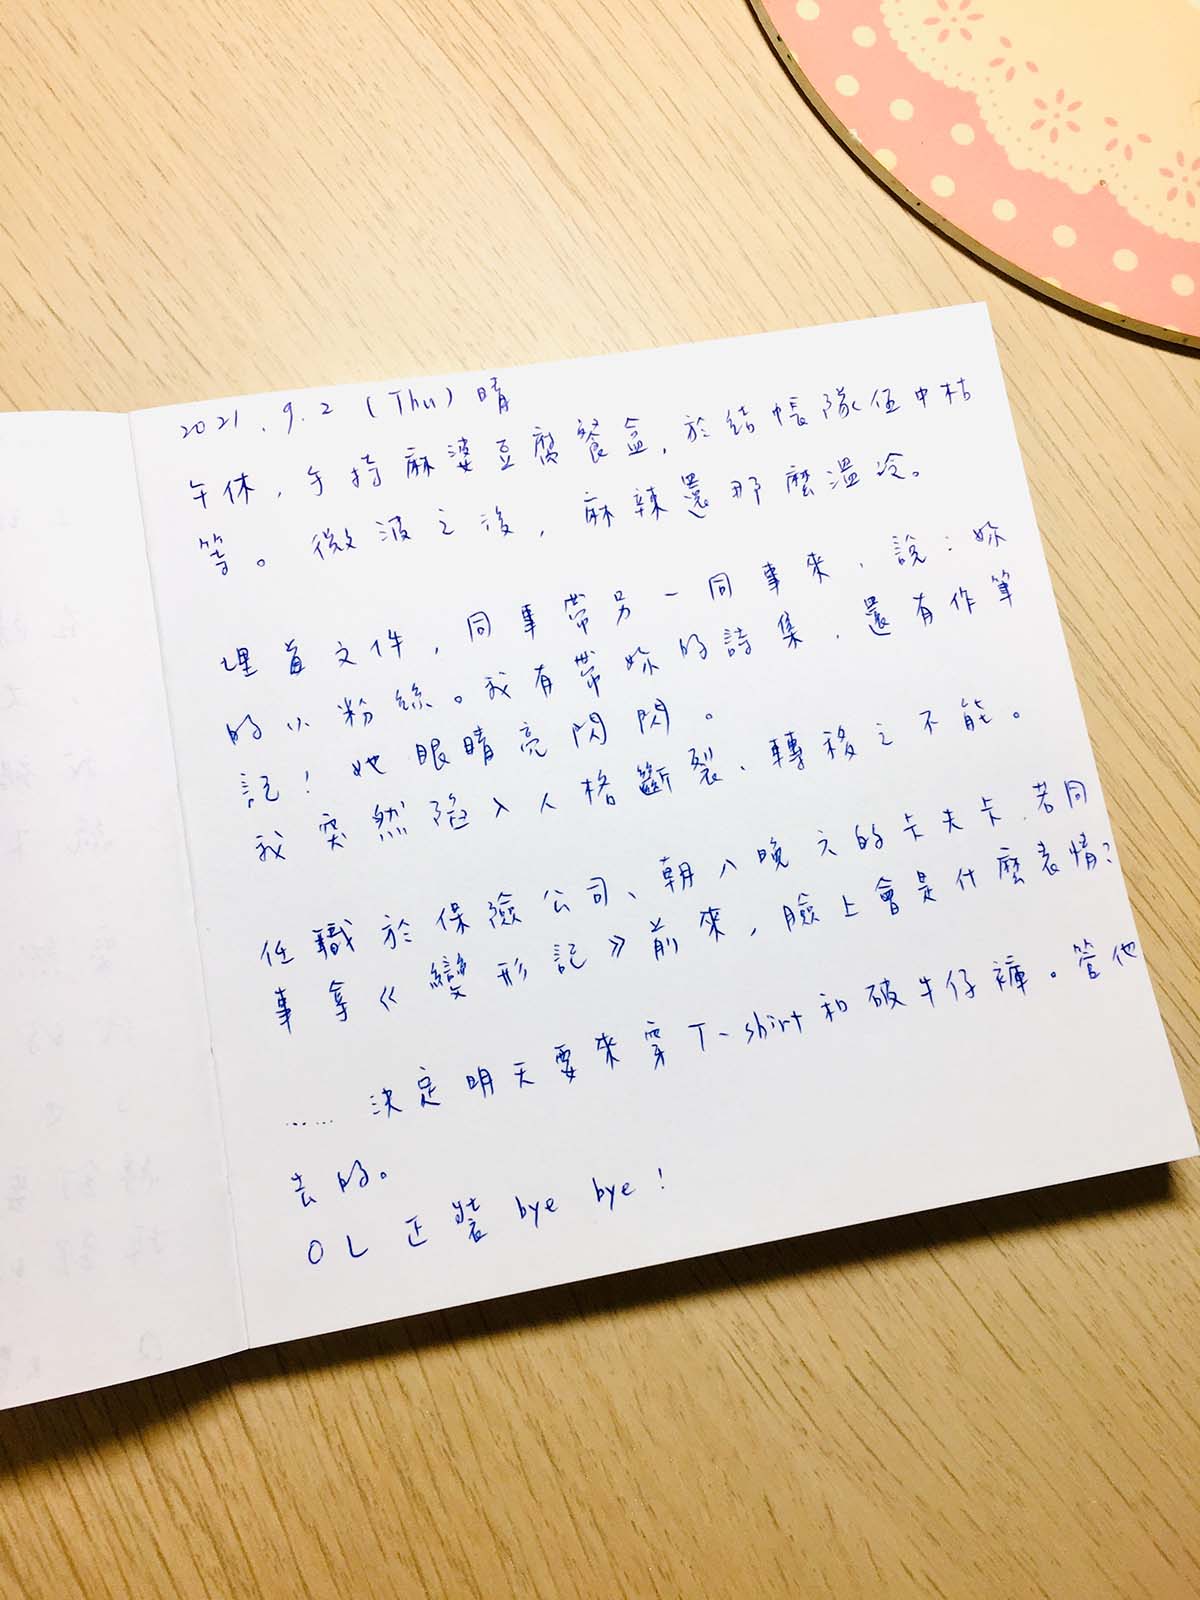 2021.9.2 (Thu) 晴
午休，手持麻婆豆腐餐盒，於結帳隊伍中枯
等。微波之後，麻辣還那麼溫冷。
埋首文件，同事帶另一同事來，說：妳
的小粉絲。我有帶妳的詩集，還有作筆
記！她眼睛亮閃閃。
我突然陷入人格斷裂、轉移之不能。
任職於保險公司、朝八晚六的卡夫卡，若同
事拿《變形記》前來，臉上會是什麼表情？
……決定明天要來穿T-shirt和破牛仔褲。管他
去的。
OL正裝 bye bye！